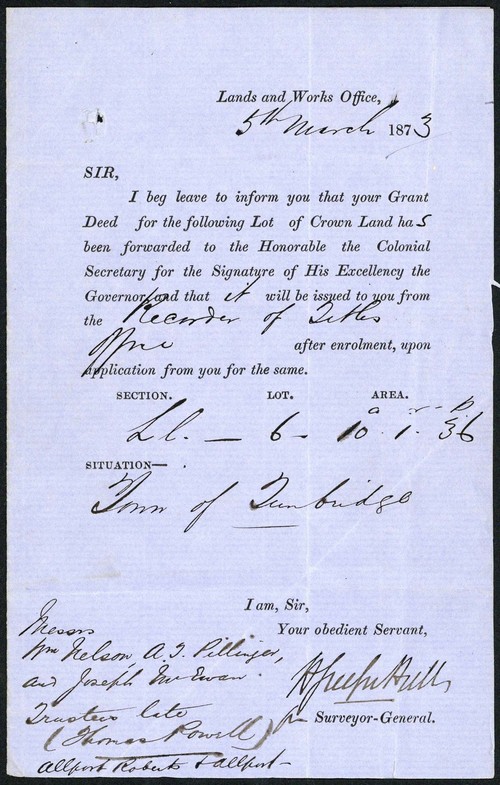 Lands and Works Office,
5th March 1873
SIR,
I beg leave to inform you that your Grant
Deed for the following Lot of Crown Land has
been forwarded to the Honorable the Colonial
Secretary for the Signature of His Excellency the
Governor, and that it will be issued to you from
the Recorder of Titles
Office after enrolment, upon
application from you for the same.
SECTION. LOT. AREA.
a r p
L l. — 6 — 10 . 1 . 36
SITUATION—
Town of Tunbridge
I am, Sir,
Your obedient Servant,
for Surveyor-General.
Messrs
Wm Nelson, A. J. Pillinger,
and Joseph McEwan
Trustees late
(Thomas Powell)
Allport Roberts & Allport—